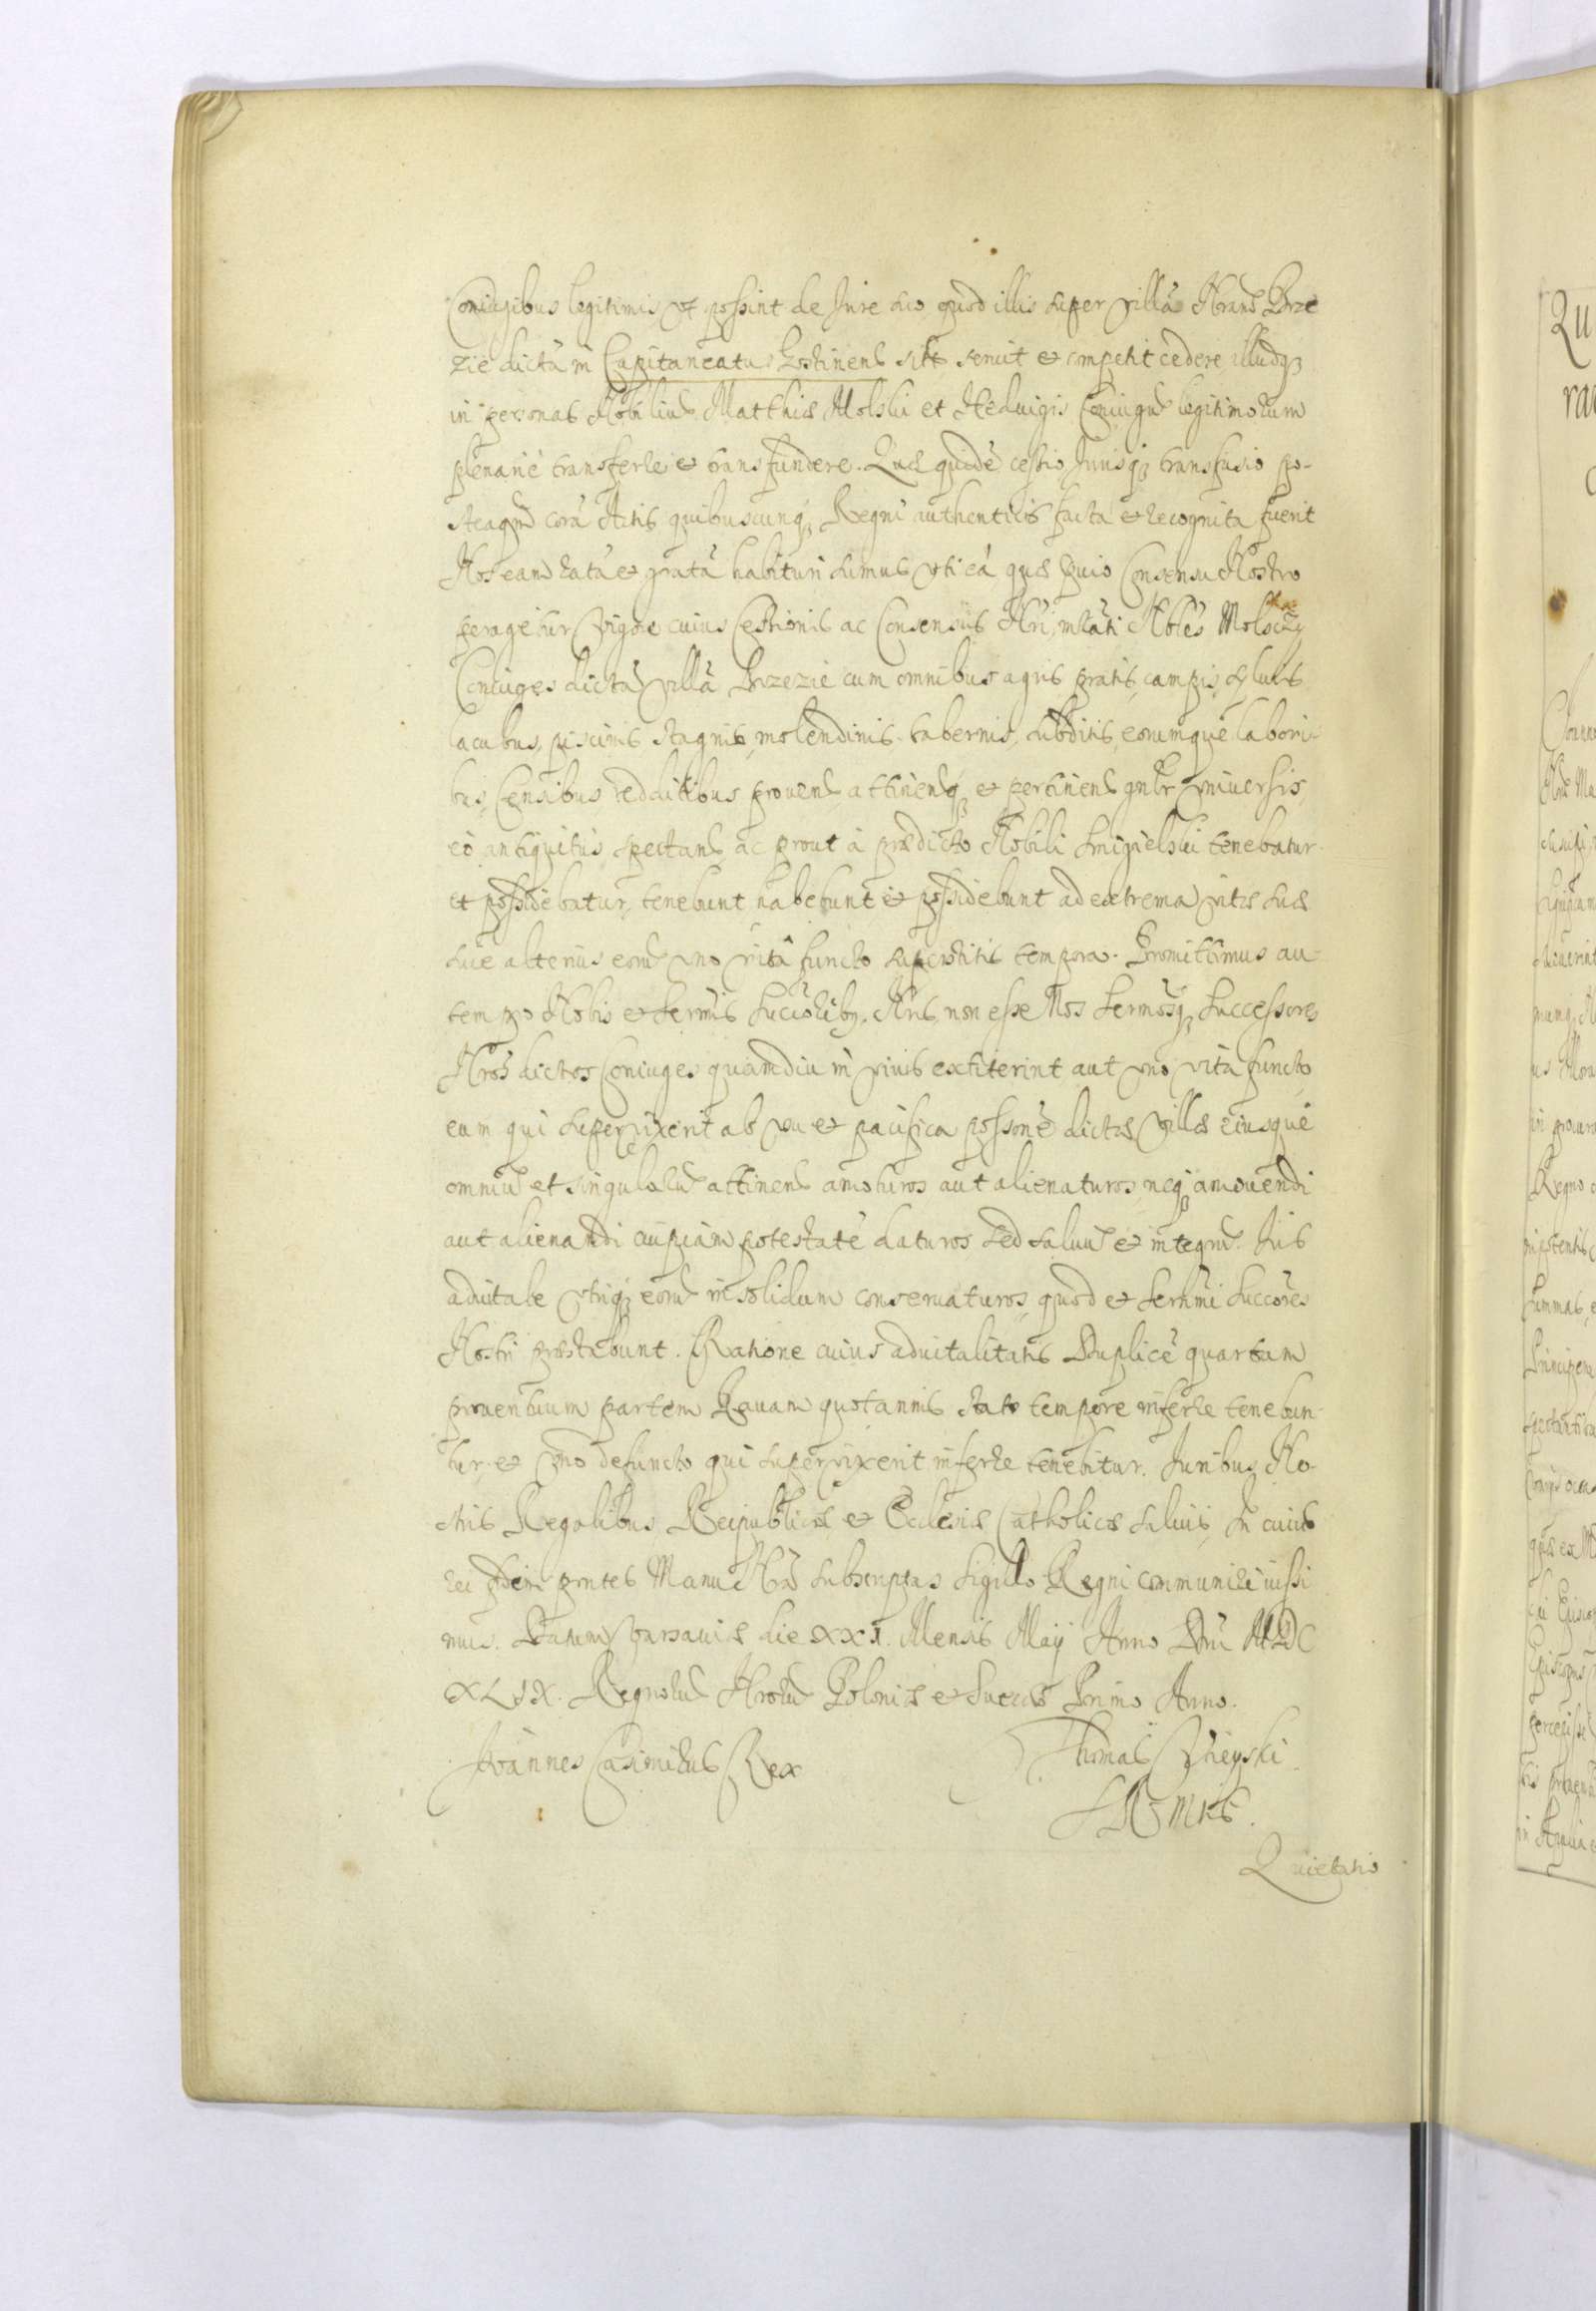 Coniugibus legitimis, vt possint de Jure suo quod illis super villa Nrand Brze
zie dictã in Capitaneatu Gostinens sitã seruit et competit cedere illudq3
in personas Nobilium Matthiæ Molski et Heduigis Coniugũ legitimorum
plenariè transferre et transfundere. Quæ quidẽ cessio Jurisq3 transfusio po-
steaqnd corã Actis quibuscunq3 Regni authenticis facta et recognita fuerit
Nos eand ratã et gratã habituri sumus vti eã quæ præuio Consensu Nostro
peragetur Vigore cuius Cessionis ac Consensus Nri, mẽati Nbles Molsczy
Coniuges dictã villã Brzezie cum omnibus agris, pratis, campis, syluis
lacubus, piscinis, stagnis, molendinis, tabernis, subditis, eorumque labori-
bus, Censibus, redditibus prouens attinensq3 et pertinens gnlr vniuersis,
eò antiquitùs spectans ac prout à prædicto Nobili Smigielski tenebatur
et possidebatur, tenebunt habebunt et possidebunt ad extrema vitæ suæ
siue alterius eorũ vno vitâ functo superstitis tempora. Promittimus au-
tem pro Nobis et Sermis Succoribq3 Nris, non esse Nos Sermosq3 Successores
Nros dictos Coniuges quamdiu in viuis extiterint aut vno vitâ functo,
eum qui superuixerit ab vsu et pacifica possone dictæ villæ eiusque
omniũ et singulorũ attinens amoturos aut alienaturos, neq3 amouendi
aut alienandi cuipiam potestatẽ daturos sed saluũ et integrũ Jus
aduitale vtriq3 eorũ in solidum conseruaturos, quod et Sermi Succores
Nostri præstabunt. Ratione cuius aduitalitatis Duplicẽ quartam
prouentuum partem Rauam quotannis stato tempore inferre tenebun-
tur et vno defuncto qui superuixerit inferre tenebitur. Juribus No-
stris Regalibus, Reipublicæ et Ecclesiæ Catholicæ saluis, In cuius
rei fidem pntes Manu Nra subscriptas Sigillo Regni communiri iussi
mus. Datum Varsauiæ die XXI. Mensis Maÿ Anno Dni MDC
XLIX. Regnorũ Nrorũ Poloniæ et Sueciæ Primo Anno.
Joannes Casimirus Rex
Thomas Vieyski
SRMtis.
Quietatio